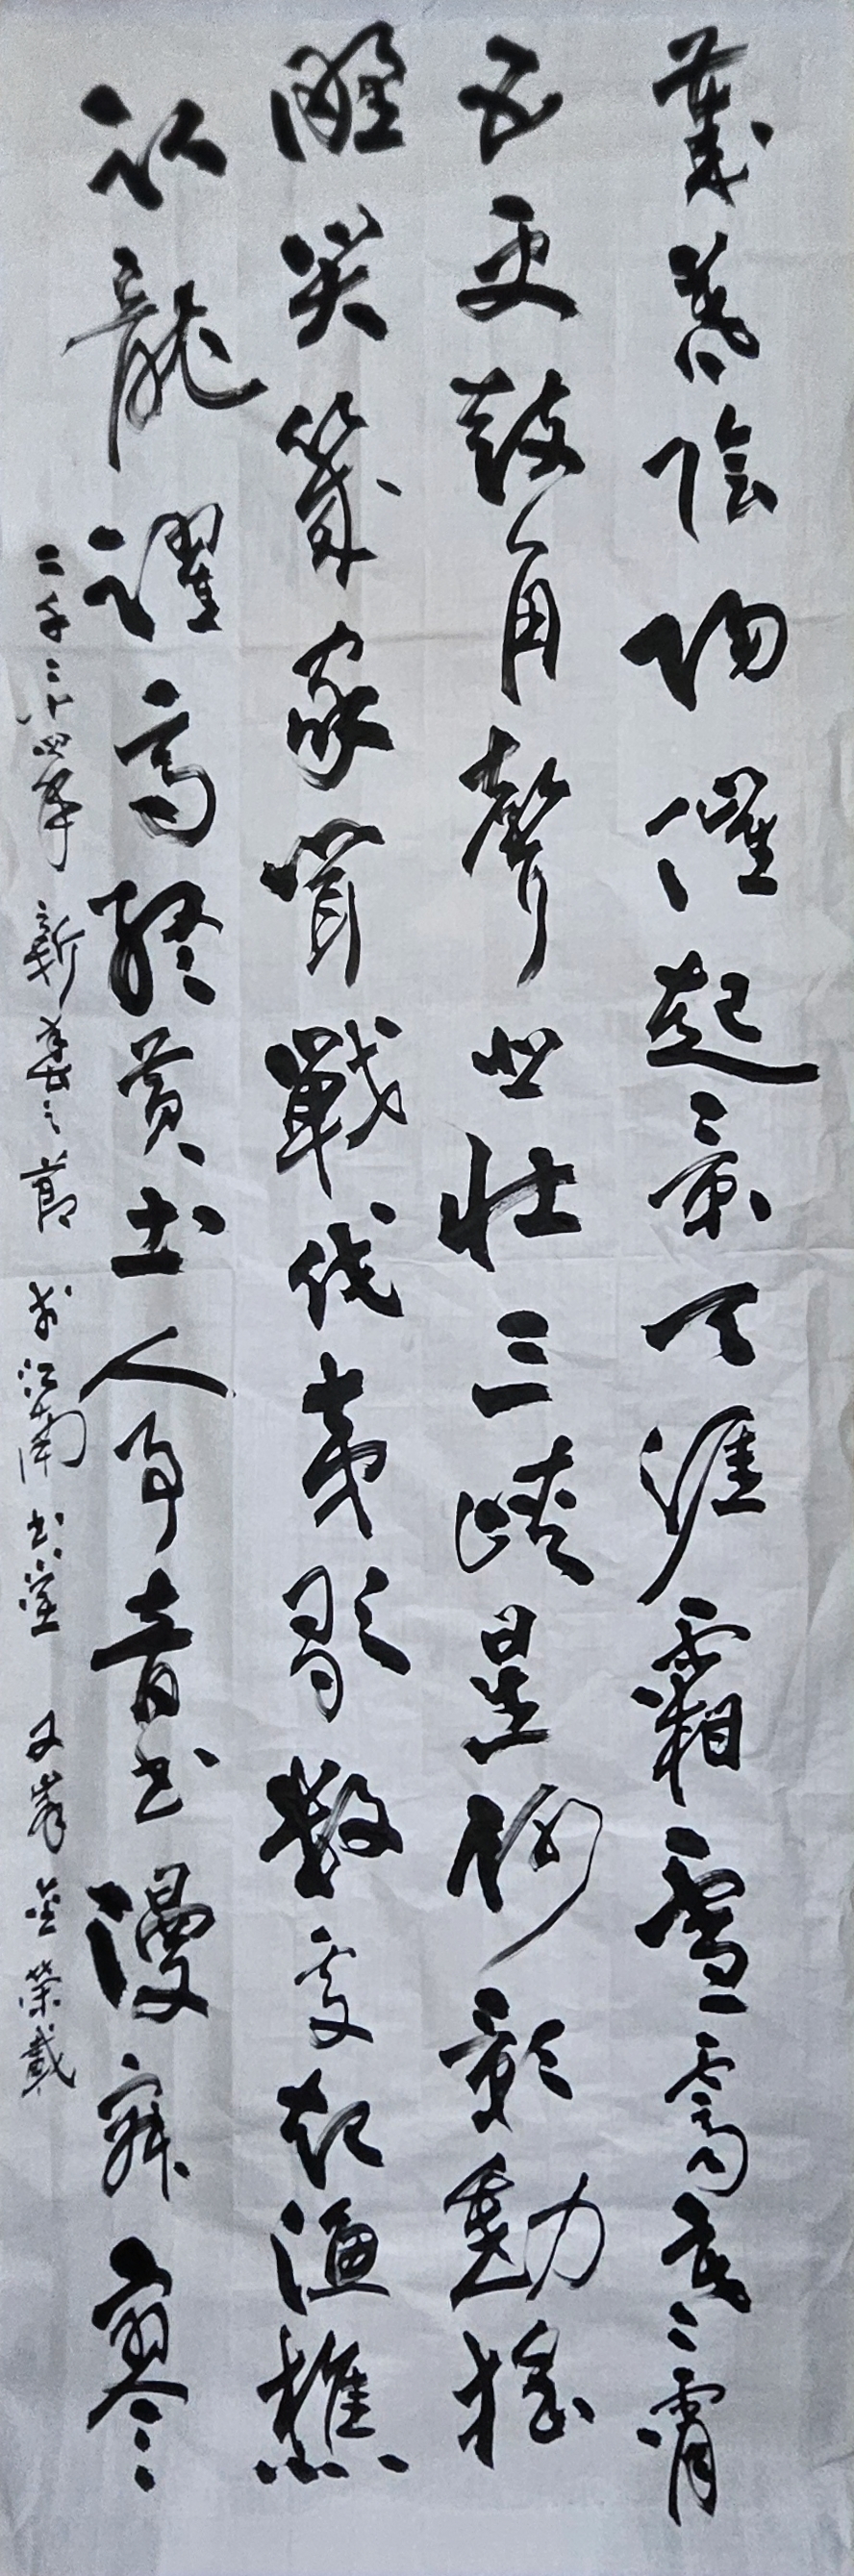 歲暮陰陽催起景天涯霜雪霽寒霄
五更鼓角聲悲壯三峽星河影動搖
野哭幾家聞戰伐夷歌數處起漁樵
臥龍躍馬終黃土人事音書漫寂寥
二千二十四年 新春之節 於江南書堂 又峯 金榮載